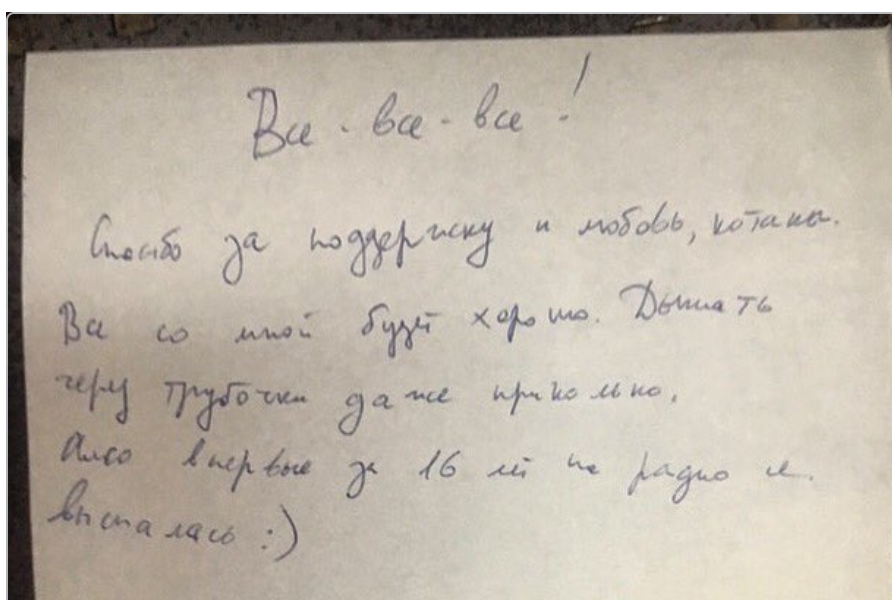 Все - все - все!
Спасибо за поддержку и любовь, котаны.
Все со мной будет хорошо. Дышать
через трубочки даже прикольно.
Алсо впервые за 16 лет на радио я
выспалась :)